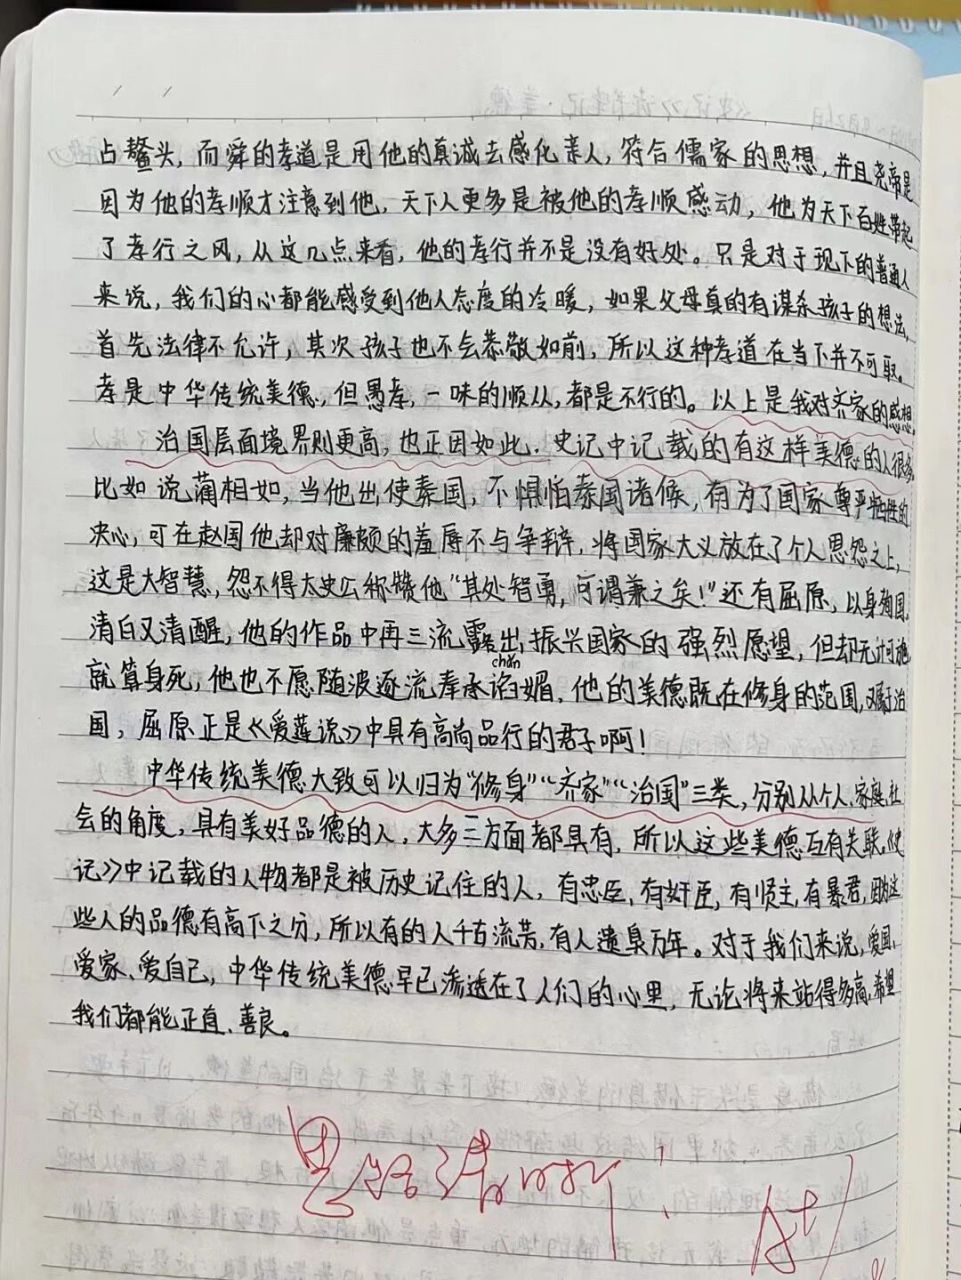 占鳌头，而舜的孝道是用他的真诚去感化亲人，符合儒家的思想，并且尧帝是
因为他的孝顺才注意到他，天下人更多是被他的孝顺感动，他为天下百姓带起
了孝行之风，从这几点来看，他的孝行并不是没有好处。只是对于现下的普通人
来说，我们的心都能感受到他人态度的冷暖，如果父母真的有谋杀孩子的想法，
首先法律不允许，其次孩子也不会恭敬如前，所以这种孝道在当下并不可取。
孝是中华传统美德，但愚孝，一味的顺从，都是不行的。以上是我对齐家的感想，
治国层面境界则更高，也正因如此，史记中记载的有这样美德的人很多，
比如说蔺相如，当他出使秦国，不惧怕秦国诸候，有为了国家尊严牺牲的
决心，可在赵国他却对廉颇的羞辱不与争辩，将国家大义放在了个人恩怨之上，
这是大智慧，怨不得太史公称赞他“其处智勇，可谓兼之矣！”还有屈原，以身殉国，
清白又清醒，他的作品中再三流露出振兴国家的强烈愿望，但却无计可施
chǎn
就算身死，他也不愿随波逐流奉承谄媚，他的美德既在修身的范围，又属于治
国，屈原正是《爱莲说》中具有高尚品行的君子啊！
中华传统美德大致可以归为“修身”“齐家”“治国”三类，分别从个人、家庭、社
会的角度，具有美好品德的人，大多三方面都具有，所以这些美德互有关联。《史
记》中记载的人物都是被历史记住的人，有忠臣、有奸臣，有贤主，有暴君，因为这
些人的品德有高下之分，所以有的人千古流芳，有人遗臭万年。对于我们来说，爱国、
爱家、爱自己，中华传统美德早已渗透在了人们的心里，无论将来站得多高，希望
我们都能正直、善良。
思路清晰！